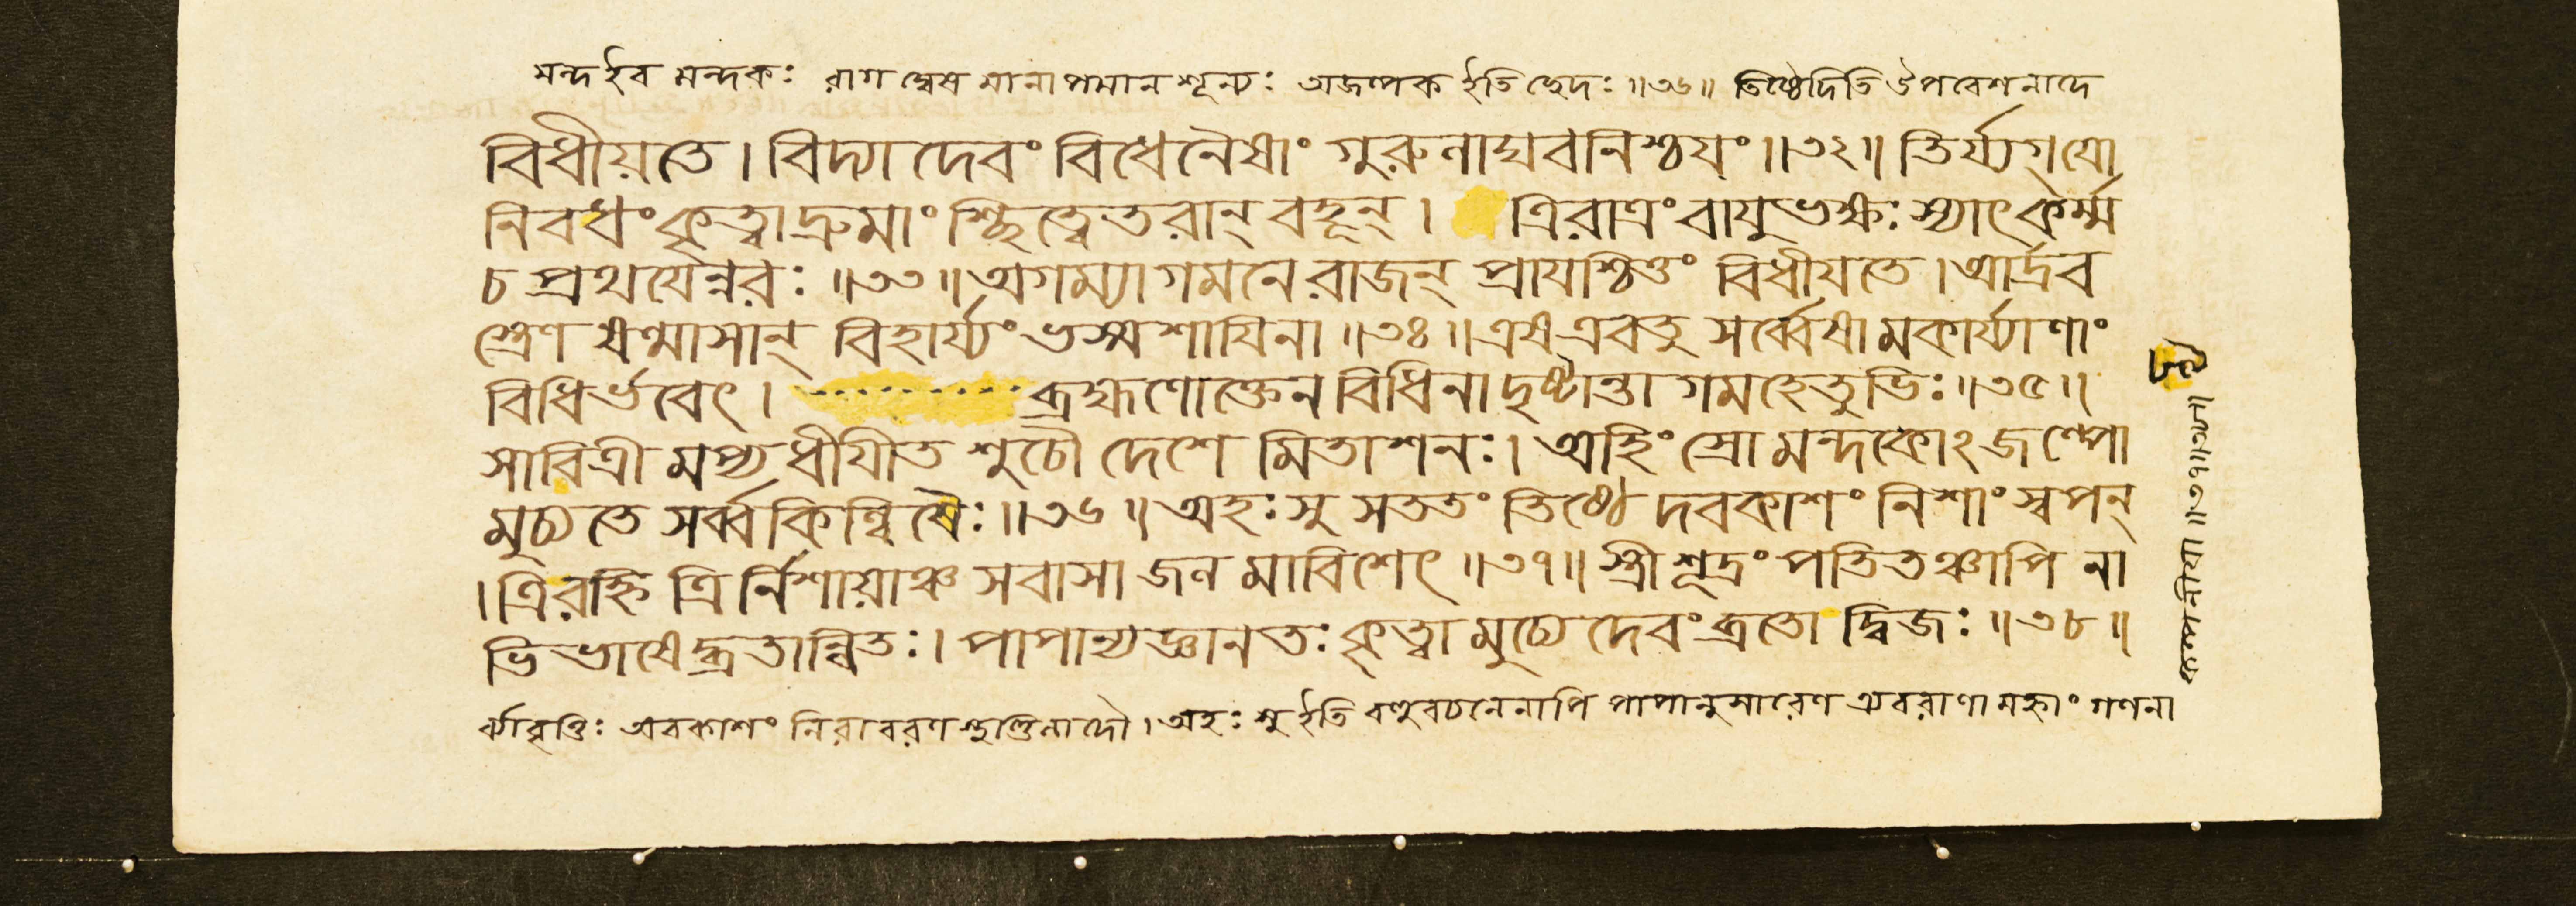 মন্দ ইব মন্দকঃ রাগ দ্বেষ মানাপমান শূন্যঃ অজল্পক ইতি ছেদঃ ॥৩৬॥ তিষ্ঠেদিতি উপবেশনাদে
বিধীয়তে । বিদ্যা দেবং বিধেনৈষাং গুরুলাঘবনিশ্চয়ং ॥৩২॥ তির্য্যগ্যো
নিবধং কৃত্বা দ্রুমাংশ্ছিত্ত্বেতরান্ বহূন্ । ত্রিরাত্রং বাযুভক্ষঃ স্যাৎ কর্ম্ম
চ প্রথযেন্নরঃ ॥৩৩॥ অগম্যা গমনে রাজন্ প্রাযশ্চিত্তং বিধীযতে । আর্দ্রব
স্ত্রেণ ষণ্মাসান্ বিহার্য্যং ভস্মশাযিনা ॥৩৪॥ এষ এবতু সর্ব্বেষামকার্য্যাণাং
বিধির্ভবেৎ । ব্রহ্মণোক্তেন বিধিনা দৃষ্টান্তা গমহেতুভিঃ ॥৩৫॥
সাবিত্রীমপ্যধীযীত শুচৌ দেশে মিতাশনঃ । অহিংস্রো মন্দকোঽজল্পো
মুচ্যতে সর্ব্বকিল্বিষৈঃ ॥৩৬॥ অহঃসু সততং তিষ্ঠেদবকাশং নিশাং স্বপন্
। ত্রিরহ্নি ত্রির্নিশায়াঞ্চ সবাসা জলমাবিশেৎ ॥৩৭॥ স্ত্রীশূদ্রং পতিতঞ্চাপি না
ভিভাষেদ্ব্রতান্বিতঃ । পাপান্যজ্ঞানতঃ কৃত্বা মুচ্যেদেবংব্রতো দ্বিজঃ ॥৩৮॥
র্ব্যাবৃত্তিঃ অবকাশং নিরাবরণস্থণ্ডিলাদৌ । অহঃসু ইতি বহুবচনেনাপি পাপানুসারেণ অবরাণামহ্নাং গণনা
কল্পনীযা ॥৩৭॥৩৮॥